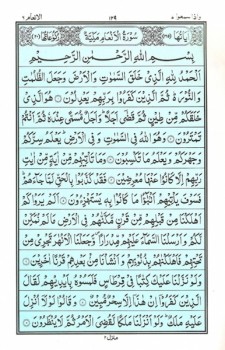 الانعام ٦
١٢٤
واذا سمعوا ٧
سُوْرَةُ الْاَنْعَامِ مَكِّيَّةٌ
بِسْمِ اللهِ الرَّحْمٰنِ الرَّحِيْمِ
اَلْحَمْدُ لِلّٰهِ الَّذِيْ خَلَقَ السَّمٰوٰتِ وَالْاَرْضَ وَجَعَلَ الظُّلُمٰتِ
وَالنُّوْرَ ثُمَّ الَّذِيْنَ كَفَرُوْا بِرَبِّهِمْ يَعْدِلُوْنَ ۝ هُوَ الَّذِيْ
خَلَقَكُمْ مِّنْ طِيْنٍ ثُمَّ قَضٰۤى اَجَلًا وَاَجَلٌ مُّسَمًّى عِنْدَهٗ ثُمَّ اَنْتُمْ
تَمْتَرُوْنَ ۝ وَهُوَ اللهُ فِي السَّمٰوٰتِ وَفِي الْاَرْضِ يَعْلَمُ سِرَّكُمْ
وَجَهْرَكُمْ وَيَعْلَمُ مَا تَكْسِبُوْنَ ۝ وَمَا تَاْتِيْهِمْ مِّنْ اٰيَةٍ مِّنْ اٰيٰتِ
رَبِّهِمْ اِلَّا كَانُوْا عَنْهَا مُعْرِضِيْنَ ۝ فَقَدْ كَذَّبُوْا بِالْحَقِّ لَمَّا جَآءَهُمْ
فَسَوْفَ يَاْتِيْهِمْ اَنْۢبٰٓؤُا مَا كَانُوْا بِهٖ يَسْتَهْزِءُوْنَ ۝ اَلَمْ يَرَوْا كَمْ
اَهْلَكْنَا مِنْ قَبْلِهِمْ مِّنْ قَرْنٍ مَّكَّنّٰهُمْ فِي الْاَرْضِ مَا لَمْ نُمَكِّنْ
لَّكُمْ وَاَرْسَلْنَا السَّمَآءَ عَلَيْهِمْ مِّدْرَارًا وَّجَعَلْنَا الْاَنْهٰرَ تَجْرِيْ مِنْ
تَحْتِهِمْ فَاَهْلَكْنٰهُمْ بِذُنُوْبِهِمْ وَاَنْشَاْنَا مِنْۢ بَعْدِهِمْ قَرْنًا اٰخَرِيْنَ ۝
وَلَوْ نَزَّلْنَا عَلَيْكَ كِتٰبًا فِيْ قِرْطَاسٍ فَلَمَسُوْهُ بِاَيْدِيْهِمْ لَقَالَ
الَّذِيْنَ كَفَرُوْۤا اِنْ هٰذَاۤ اِلَّا سِحْرٌ مُّبِيْنٌ ۝ وَقَالُوْا لَوْلَاۤ اُنْزِلَ
عَلَيْهِ مَلَكٌ وَلَوْ اَنْزَلْنَا مَلَكًا لَّقُضِيَ الْاَمْرُ ثُمَّ لَا يُنْظَرُوْنَ ۝
منزل ٢